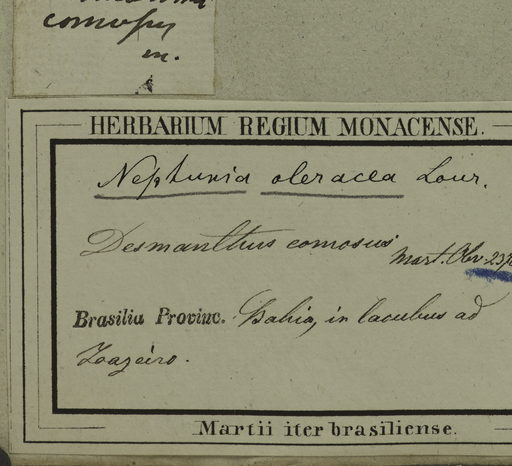 comosus
m.
HERBARIUM REGIUM MONACENSE.
Neptunia oleracea Lour.
Desmanthus comosus
Mart. Obs. 
Brasilia Provinc. Bahia, in lacubus ad
Joazeiro.
Martii iter brasiliense.